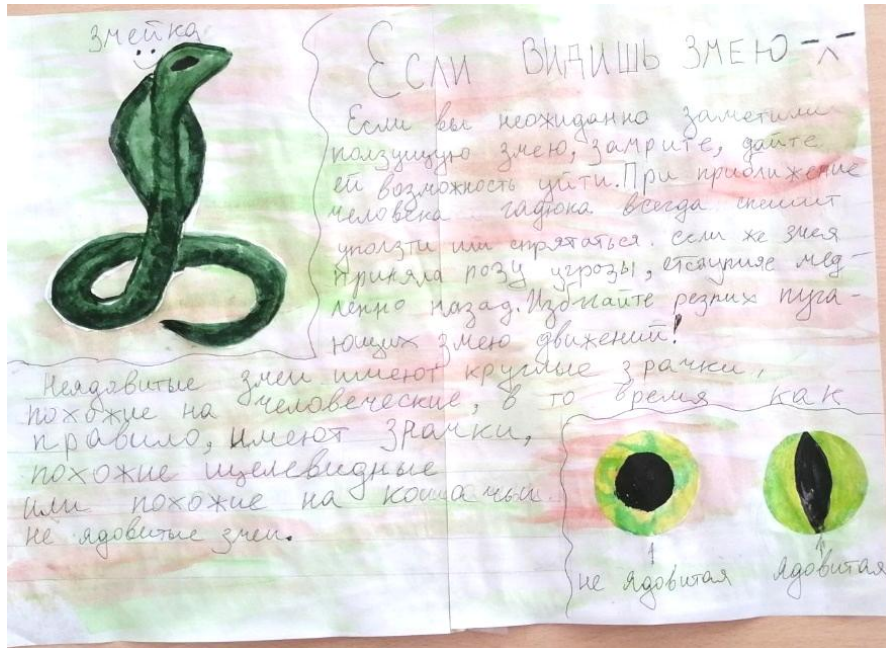 Змейка
Если видишь змею
Если вы неожиданно заметили
ползущую змею, замрите, дайте
ей возможность уйти. При приближение
человека гадюка всегда спешит
уползти или спрятаться. если же змея
приняла позу угрозы, отступите мед-
ленно назад. Избегайте резких пуга-
ющих змею движений!
Неядовитые змеи имеют круглые зрачки,
похожие на человеческие, в то время как
правило, имеют зрачки,
похожие щелевидные
или похожие на кошачьи
не ядовитые змеи.
не ядовитая
ядовитая